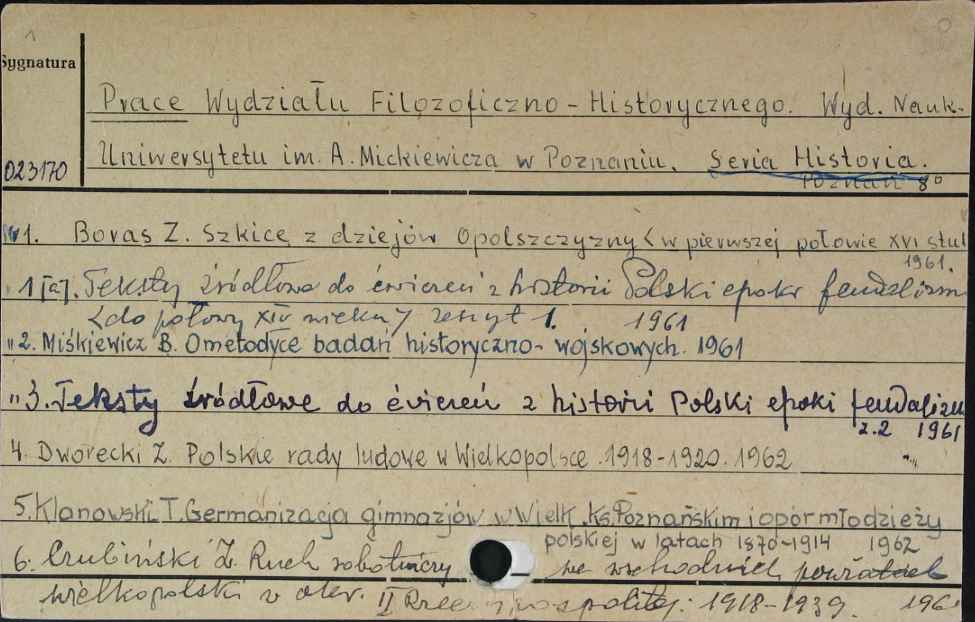 1
Sygnatura
Prace Wydziału Filozoficzno-Historycznego. Wyd. Nauk.
Uniwersytetu im. A. Mickiewicza w Poznaniu. Seria Historia.
023170
Poznań 8°
1. Boras Z. Szkice z dziejów Opolszczyzny <w pierwszej połowie XVI stul
1961.
1[a]. Teksty źródłowe do ćwiczeń z historii Polski epoki feudalizm
<do połowy XIV wieku> zeszyt 1. 1961
"2. Miśkiewicz B. O metodyce badań historyczno-wojskowych. 1961
"3. Teksty źródłowe do ćwiczeń z historii Polski epoki feudalizm
z.2 1961
4. Dworecki Z. Polskie rady ludowe w Wielkopolsce 1918-1920. 1962
5. Klanowski T. Germanizacja gimnazjów w Wielk. Ks. Poznańskim i opór młodzieży
polskiej w latach 1870-1914 1962
6. Czubiński Z. Ruch robotniczy we wschodnich powiatach
wielkopolski w okr. II Rzeczypospolitej. 1918-1939. 196